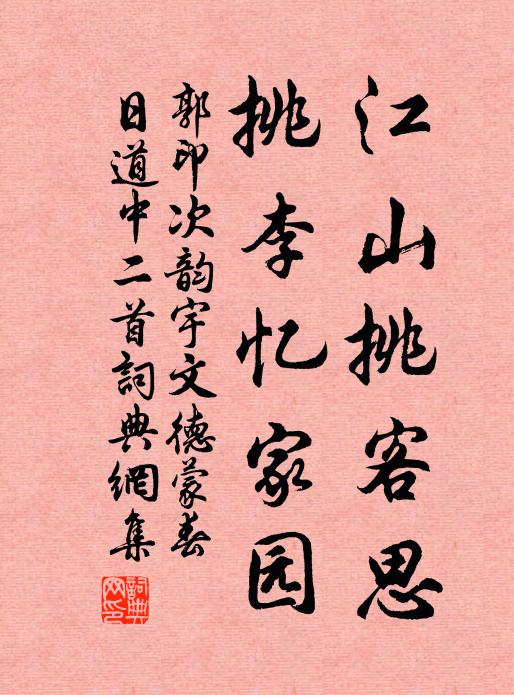 江山挑客思
挑李忆家园
郭印次韵宇文德蒙春
日道中二首詞典網集
詞典网印